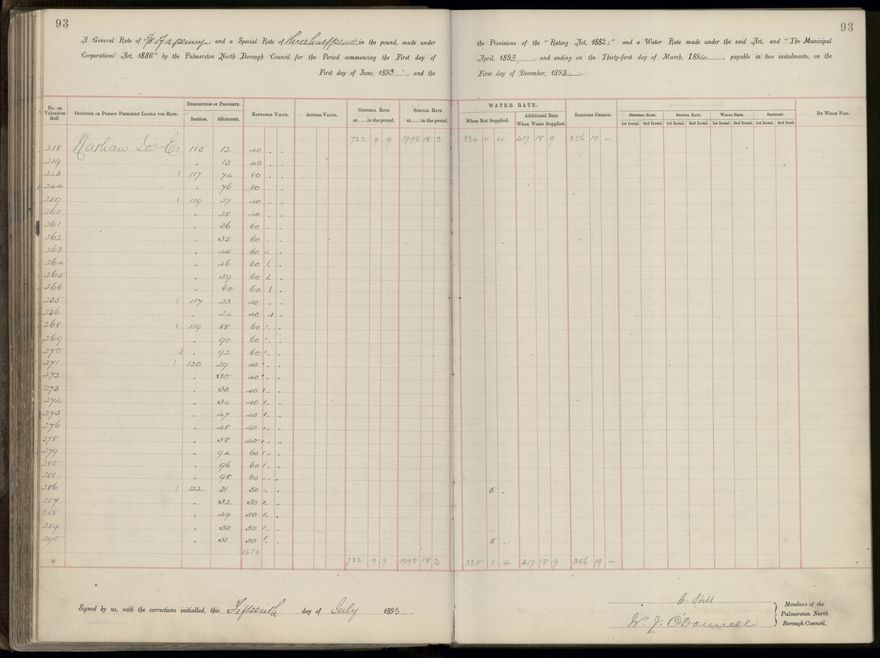 93
93
A General Rate of of a penny and a Special Rate of three halfpence in the pound, made under
Corporations' Act, 1886" by the Palmerston North Borough Council for the Period commencing the First day of
First day of June, 1893, and the
the Provisions of the "Rating Act, 1882;" and a Water Rate made under the said Act, and "The Municipal
April, 1893, and ending on the Thirty-first day of March, 1894, payable in two instalments, on the
First day of December, 1893
No. on Valuation Roll Occupier or Person Primarily Liable for Rate. Description of Property. Section. Allotment. Rateable Value. Annual Value. General Rate at in the pound. Special Rate at in the pound.
WATER RATE. When Not Supplied. Additional Rate When Water Supplied. Sanitary Charge. General Rate. Special Rate. Water Rate. Sanitary. By Whom Paid.
1st Instal. 2nd Instal. 1st Instal. 2nd Instal. 1st Instal. 2nd Instal. 1st Instal. 2nd Instal.
722 9 9 1798 18 3 334 11 4 417 18 9 356 19 -
218 Nathan 115 12 40 - -
219 " 13 40 - -
243 117 74 80 - -
244 " 76 80 - -
259 119 27 40 - -
260 " 28 40 - -
261 " 36 60 - -
262 " 35 60 - -
263 " 45 60 - -
264 " 46 60 - -
265 " 59 60 - -
266 " 60 60 - -
235 117 23 40 - -
236 " 24 40 - -
268 119 88 60 - -
269 " 90 60 - -
270 " 92 60 - -
271 120 29 40 - -
272 " 30 40 - -
273 " 33 40 - -
274 " 34 40 - -
275 " 47 40 - -
276 " 48 40 - -
278 " 58 40 - -
279 " 94 60 - -
280 " 96 60 - -
281 " 98 60 - -
286 122 31 50 - - 5 -
287 " 32 50 - -
288 " 49 50 - -
289 " 50 50 - -
290 " 51 50 - - 5 -
722 9 9 1798 18 3 335 1 4 417 18 9 356 19 -
Signed by us, with the corrections initialled, this Fifteenth day of July 1893
C. Still
W. J. O'Donnell
Members of the
Palmerston North
Borough Council.